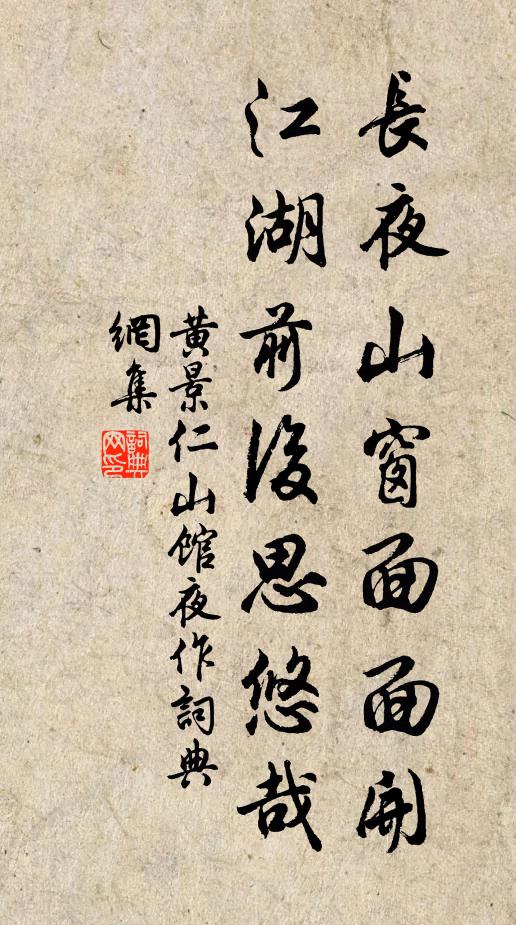 長夜山窗面面開
江湖前後思悠哉
黃景仁山館夜作詞典
網集
詞典网印